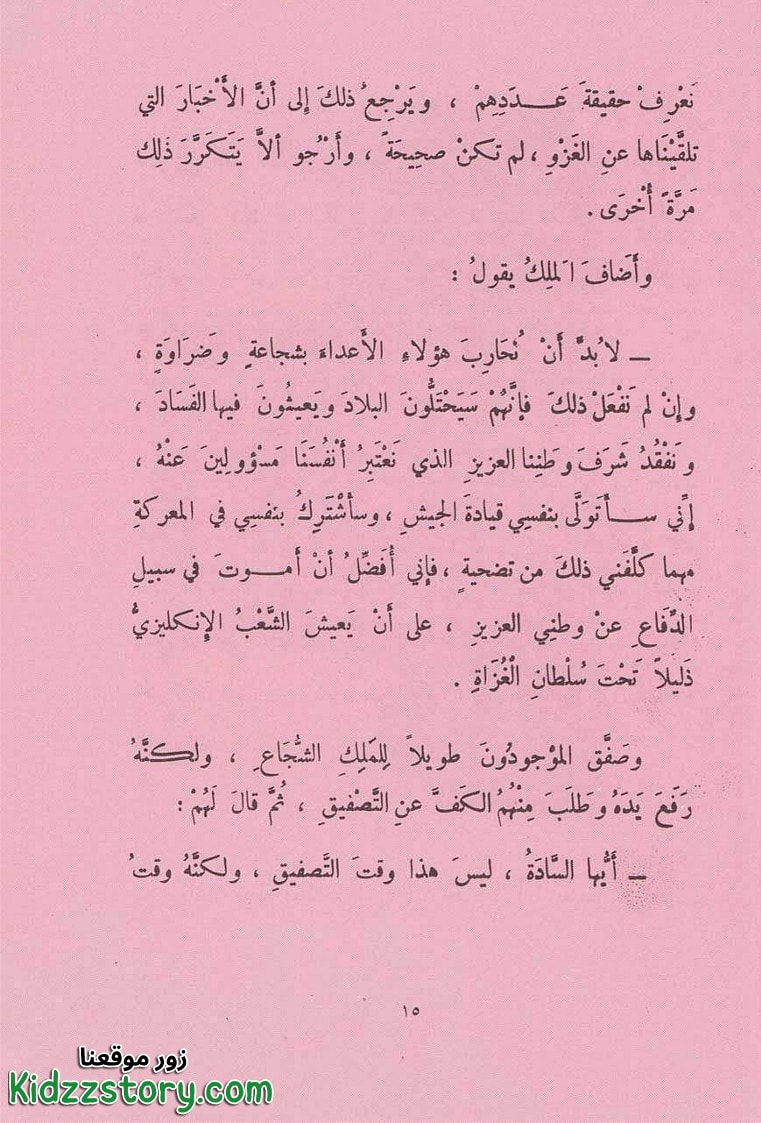 نَعْرِفْ حقيقةَ عَـــدَدِهِمْ ، ويَرْجِعُ ذلكَ إلى أنَّ الأَخْبَارَ التي
تلقَّيْنَاها عنِ الغَزْوِ ، لم تكنْ صحيحَةً ، وأَرْجُو ألاَّ يَتَكَرَّرَ ذَلِك
مَرَّةً أُخْرَى .
وأَضافَ المَلِكُ يقولُ :
ــ لا بُدَّ أَنْ نُحَارِبَ هؤلاءِ الأَعداءَ بشجاعةٍ وَضَراوَةٍ ،
وإنْ لم نَفْعَلْ ذلكَ فإنَّهُمْ سَيَحْتَلُّونَ البلادَ ويَعيثُونَ فيها الفَسَادَ ،
ونَفْقُدُ شَرَفَ وَطَنِنا العزيزِ الذي نَعْتَبِرُ أَنْفُسَنَا مَسْؤولينَ عَنْهُ ،
إنِّي ســـأَتَوَلَّى بنفسِي قيادةَ الجيشِ ، وسأشْتَرِكُ بنفسِي في المعركةِ
مهما كلَّفَني ذلكَ من تضحيةٍ ، فإني أُفَضِّلُ أنْ أَمـــوتَ في سبيلِ
الدِّفَاعِ عنْ وطنِي العزيزِ ، على أَنْ يَعيشَ الشَّعْبُ الإنكليزيُّ
ذَليلاً تَحْتَ سُلْطانِ الْغُزَاةِ .
وصَفَّق المَوْجودُونَ طويلاً لِلمَلِكِ الشُّجَاعِ ، ولكنَّهُ
رَفَعَ يَدَهُ وطَلَبَ مِنْهُمُ الكَفَّ عنِ التَّصْفيقِ ، ثُمَّ قالَ لَهُمْ :
ــ أَيُّها السَّادَةُ ، ليسَ هذا وقتَ التَّصفيقِ ، ولكنَّهُ وقتُ
١٥
زور موقعنا
Kidzzstory.com